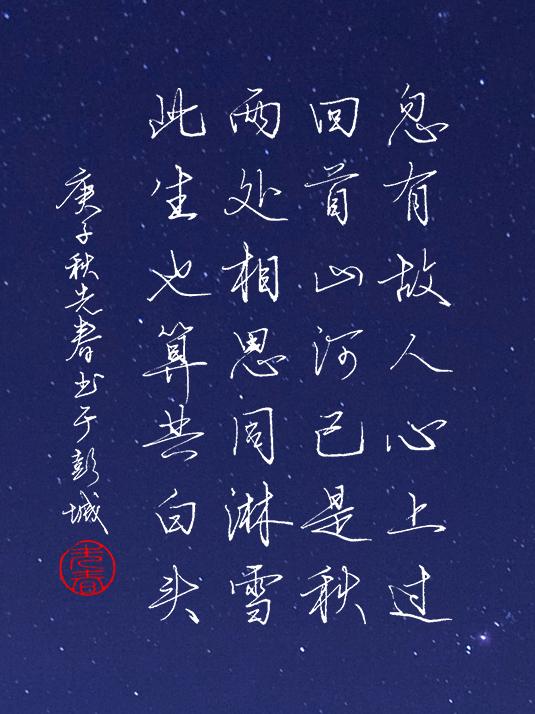 忽有故人心上过
回首山河已是秋
两处相思同淋雪
此生也算共白头
庚子秋光春书于彭城
光春